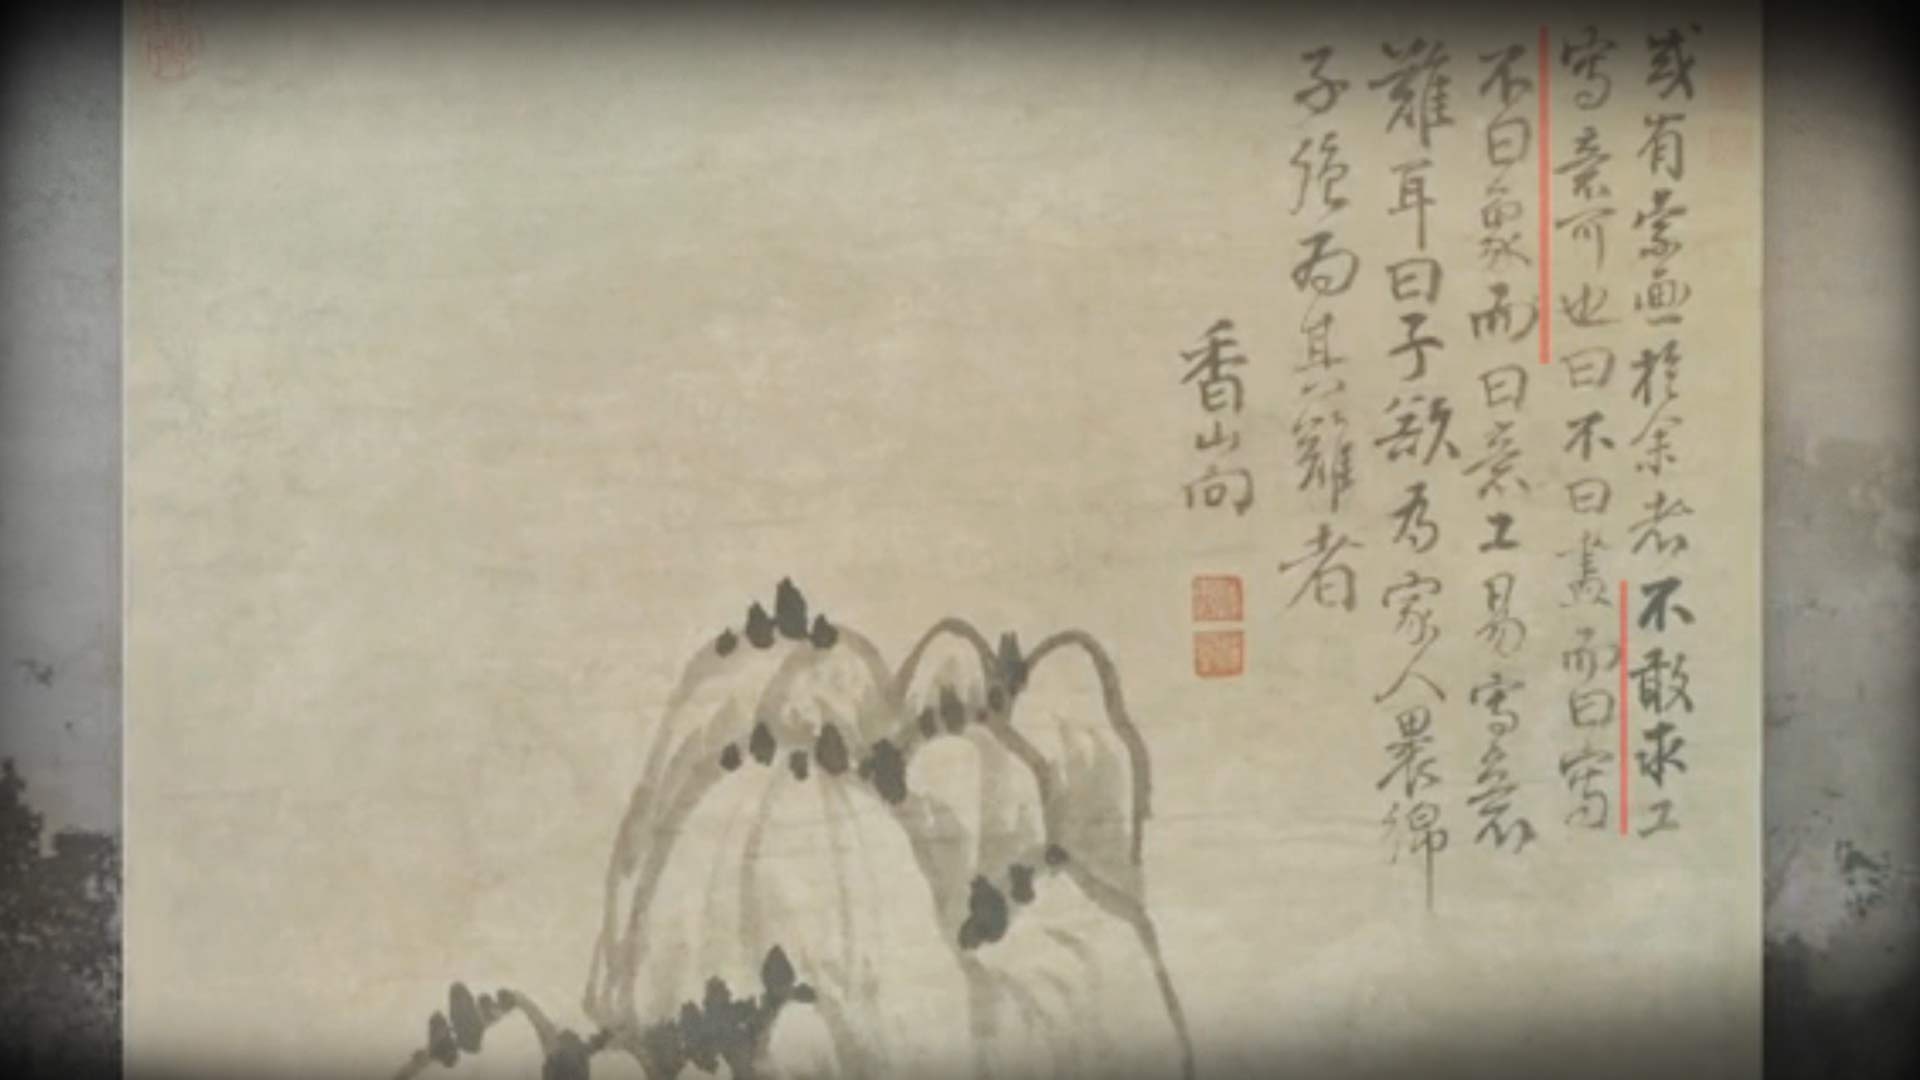 或有索画於余者不敢求工
寫意可也曰不曰畫而曰寫
不曰象而曰意工易寫意
難耳曰子欲為家人綿
子強為其難者
香山向